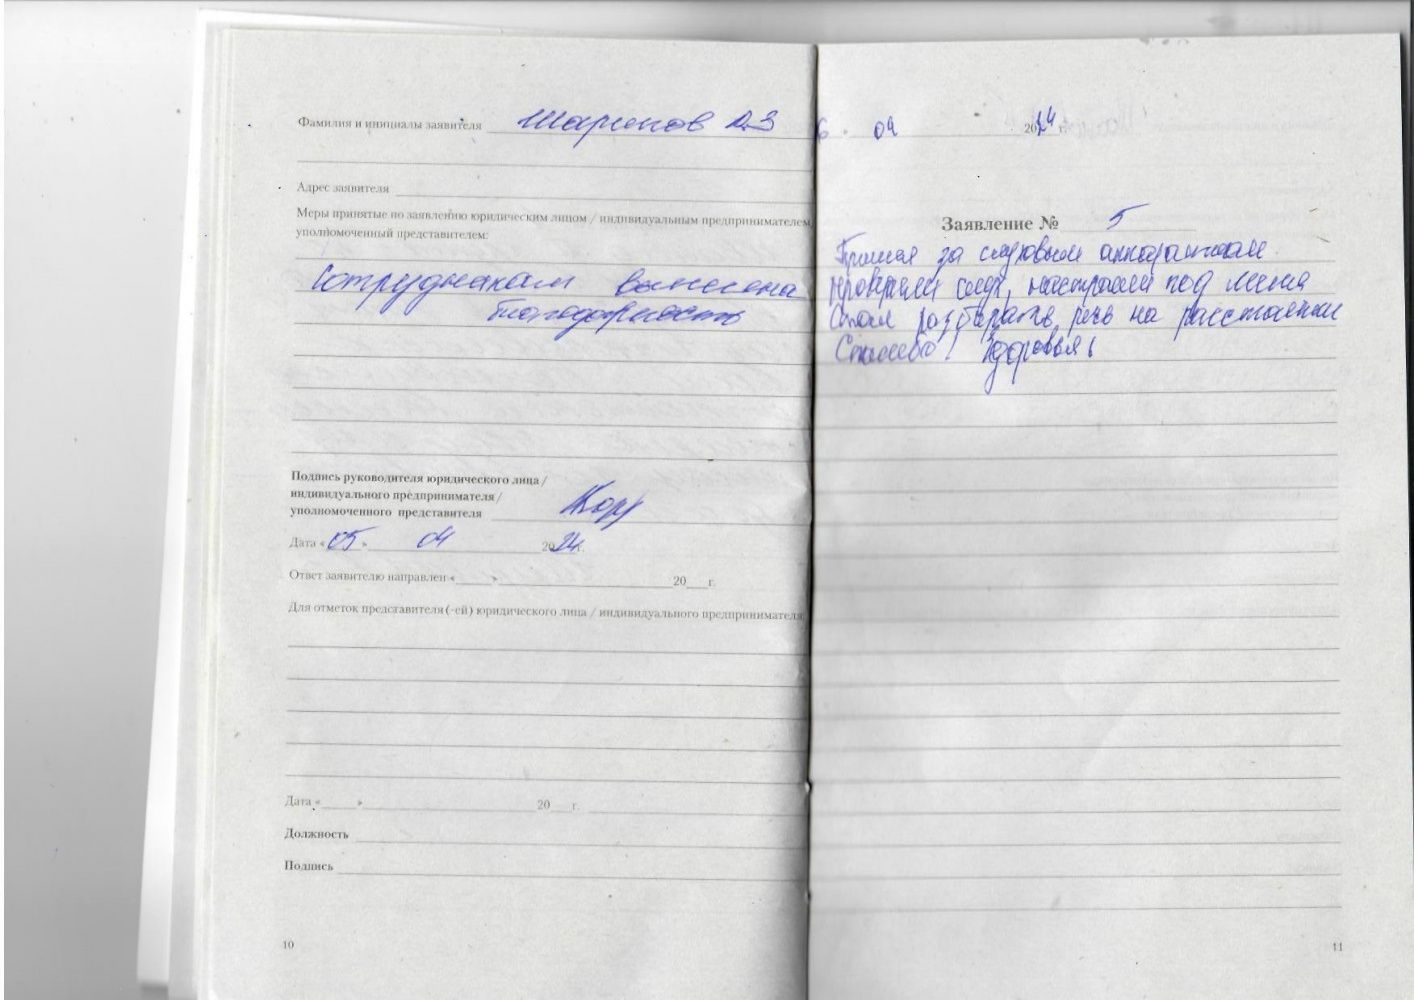 Фамилия и инициалы заявителя Шарипов
Адрес заявителя
Меры принятые по заявлению юридическим лицом / индивидуальным предпринимателем,
уполномоченный представителем:
Сотрудникам вынесена
благодарность
Подпись руководителя юридического лица /
индивидуального предпринимателя /
уполномоченного представителя
Дата «05» 04 2024г.
Ответ заявителю направлен «____»____ 20__г.
Для отметок представителя (-ей) юридического лица / индивидуального предпринимателя
Дата «____»____ 20__г.
Должность
Подпись
10
6 04 2024 г.
Заявление № 5
за слуховым аппаратом.
проверили слух, настроили под меня
Стал разбирать речь на расстоянии
Спасибо! Здоровья!
11